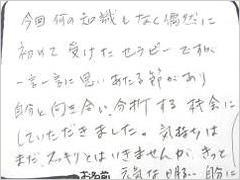 今回何の知識もなく偶然に
初めて受けたセラピーですが
一言一言に思いあたる節があり
自分と向き合い、分析する機会に
していただきました。気持ちは
まだ、スッキリとはいきませんが、きっと
元気な明るい自分に
お名前